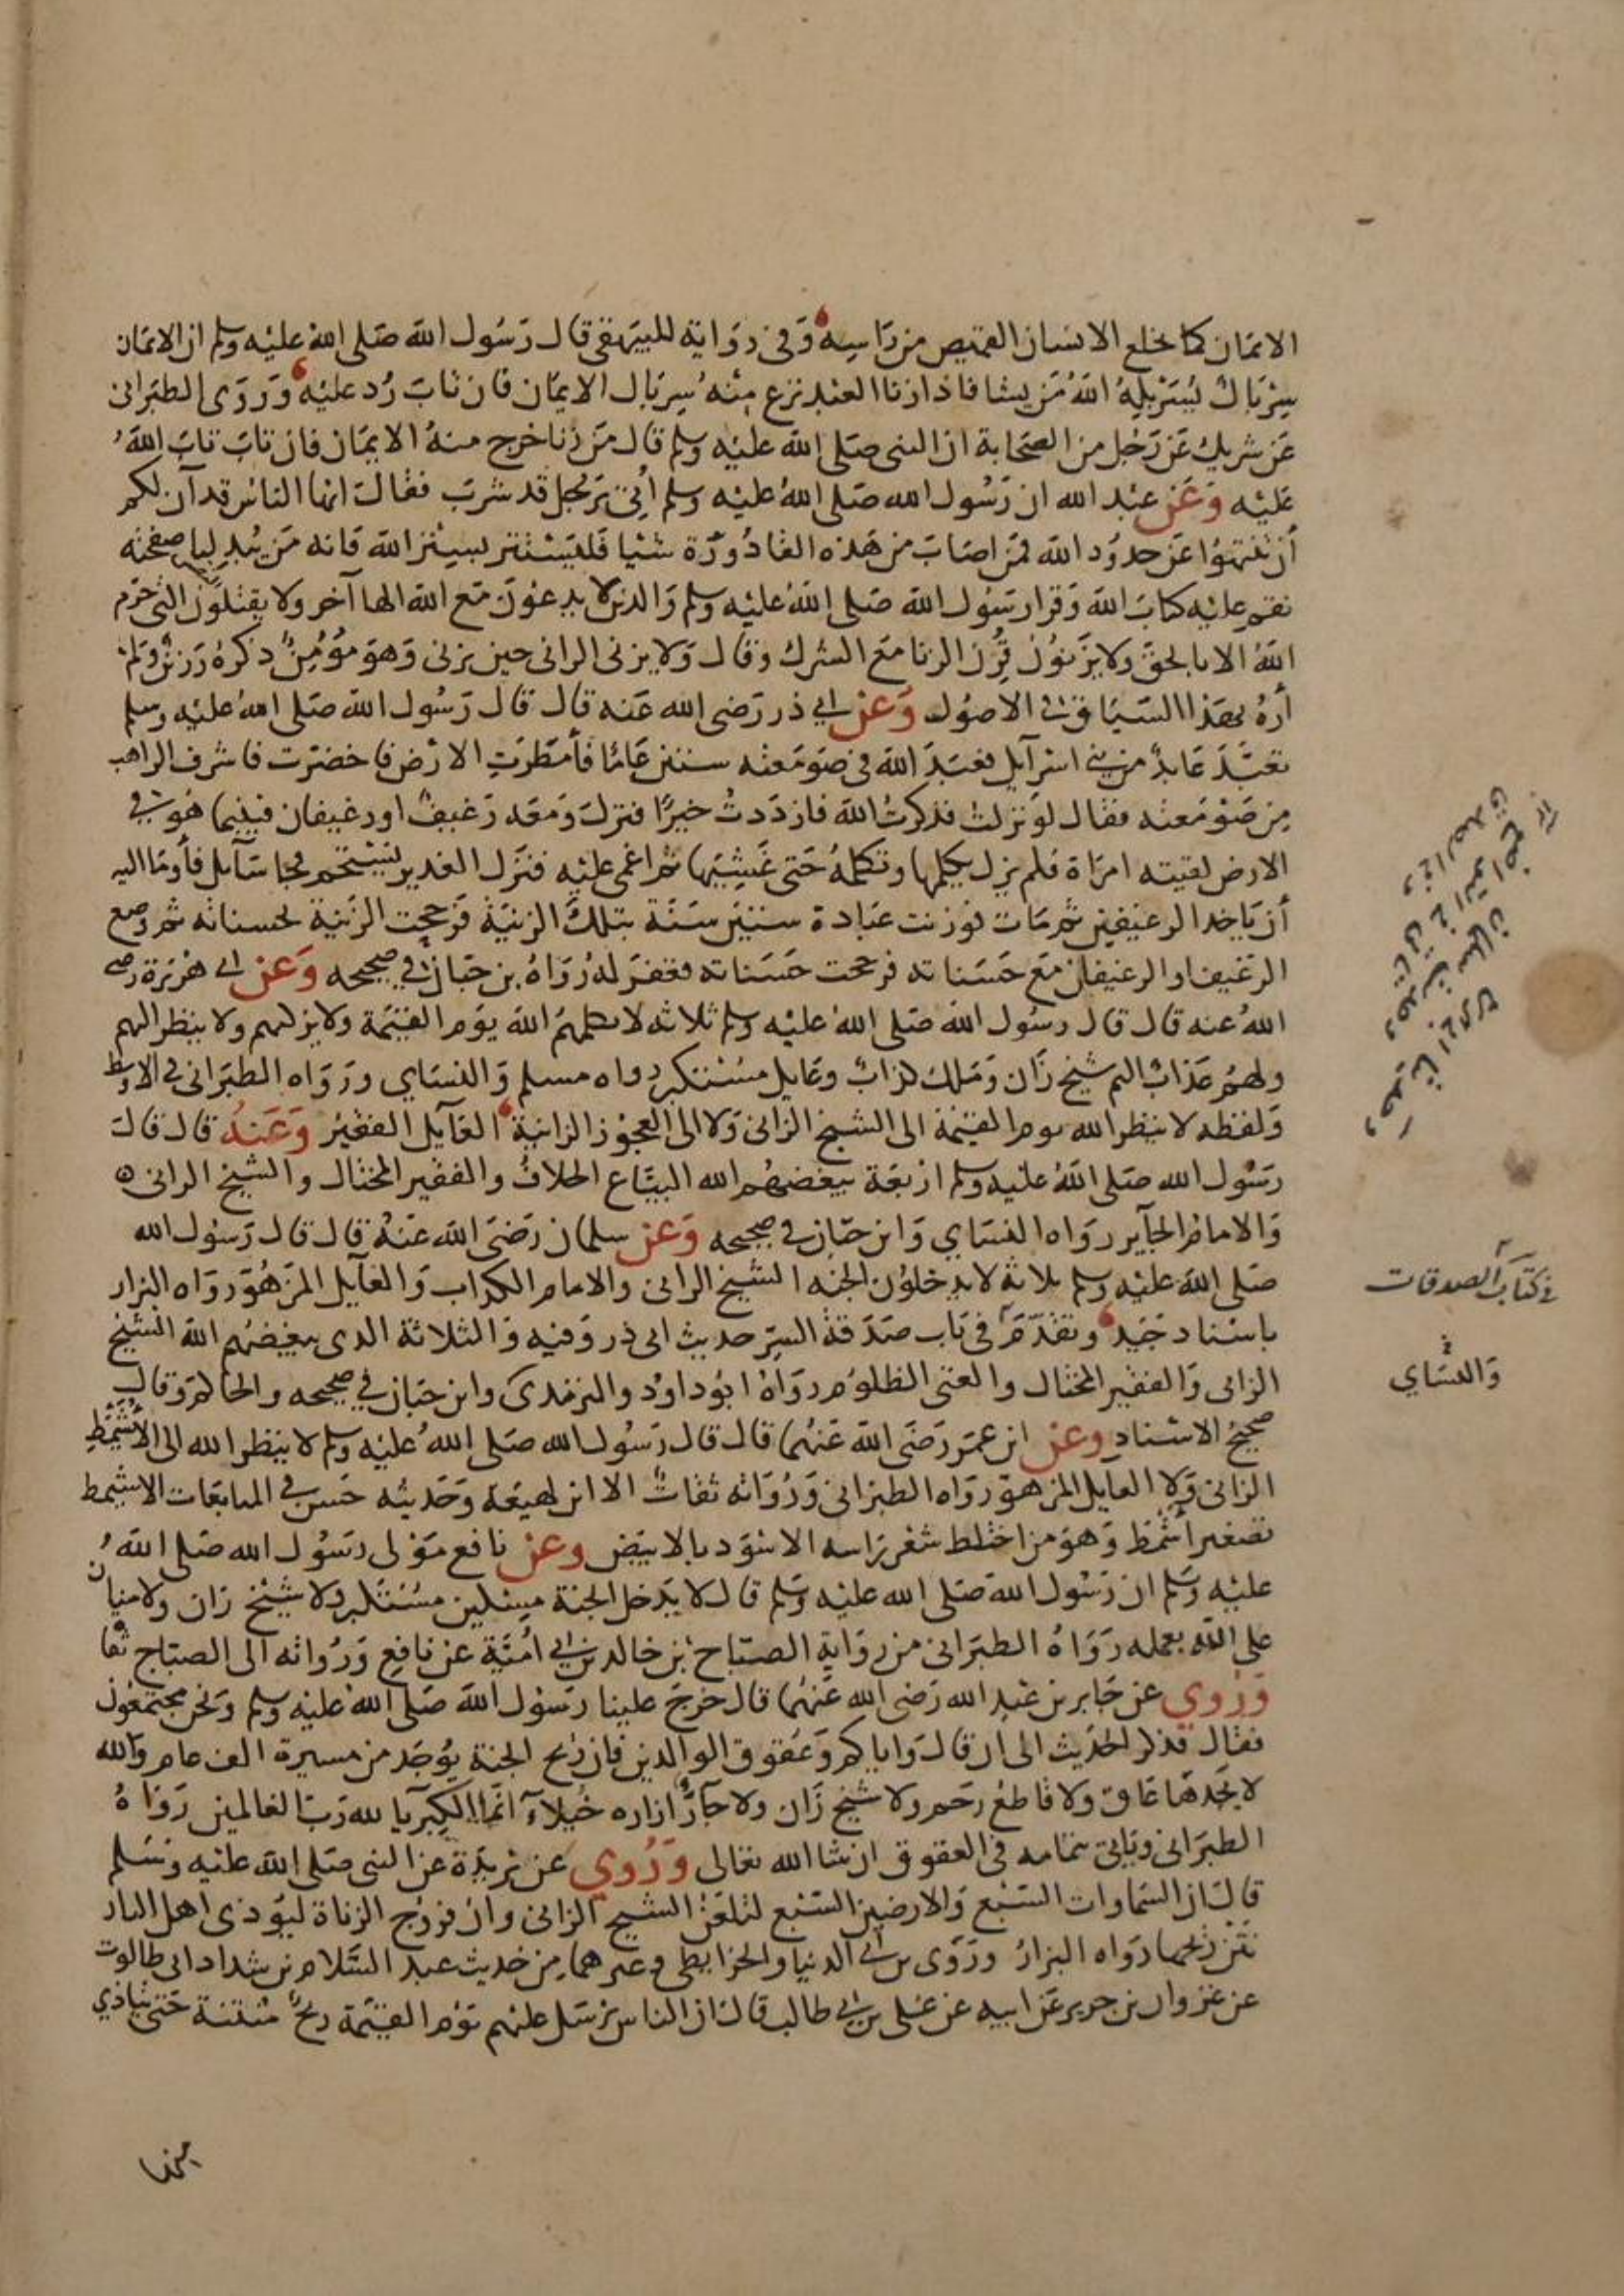 الايمان كما يخلع الانسان القميص من راسه وفي رواية للبيهقي قال رسول الله صلى الله عليه وسلم ان الايمان
سربال يسربله الله من يشا فاذا زنا العبد نزع منه سربال الايمان فان تاب رد عليه وروى الطبراني
عن شريك عن رجل من الصحابة ان النبي صلى الله عليه وسلم قال من زنا خرج منه الايمان فان تاب تاب الله
عليه وعن عبد الله ان رسول الله صلى الله عليه وسلم أتي برجل قد شرب فقال ايها الناس قد آن لكم
أن تنتهوا عن حدود الله فمن اصاب من هذه القاذورة شيا فليستتر بستر الله فانه من يبد لنا صفحته
نقم عليه كتاب الله وقرا رسول الله صلى الله عليه وسلم والذين لا يدعون مع الله الها آخر ولا يقتلون النفس التي حرم
الله الا بالحق ولا يزنون قرن الزنا مع الشرك وقال ولا يزني الزاني حين يزني وهو مؤمن ذكره رزين ولم
أره بهذا السياق في الاصول وعن ابي ذر رضي الله عنه قال قال رسول الله صلى الله عليه وسلم
تعبد عابد من بني اسرآيل فعبد الله في صومعته ستين عاما فأمطرت الارض فاخضرت فاشرف الراهب
من صومعته فقال لو نزلت فذكرت الله فازددت خيرا فنزل ومعه رغيف او رغيفان فبينما هو في
الارض لقيته امراة فلم يزل يكلمها وتكلمه حتى غشيها ثم اغمي عليه فنزل الغدير ليستحم فجا سآيل فأوما اليه
أن ياخذ الرغيفين ثم مات فوزنت عبادة ستين سنة بتلك الزنية فرجحت الزنية بحسناته ثم وضع
الرغيف او الرغيفان مع حسناته فرجحت حسناته فغفر له رواه بن حبان في صحيحه وعن ابي هريرة رضي
الله عنه قال قال رسول الله صلى الله عليه وسلم ثلاثة لا يكلمهم الله يوم القيمة ولا يزكيهم ولا ينظر اليهم
ولهم عذاب اليم شيخ زان وملك كذاب وعايل مستكبر رواه مسلم والنساي ورواه الطبراني في الاوسط
ولفظه لا ينظر الله يوم القيمة الى الشيخ الزاني ولا الى العجوز الزانية العآيل الفقير وعنه قال قال
رسول الله صلى الله عليه وسلم اربعة يبغضهم الله البياع الحلاف والفقير المختال والشيخ الزاني
والامام الجآير رواه النساي وابن حبان في صحيحه وعن سلمان رضي الله عنه قال قال رسول الله
صلى الله عليه وسلم ثلاثة لا يدخلون الجنه الشيخ الزاني والامام الكذاب والعآيل المزهو رواه البزار
باسناد جيد وتقدم في باب صدقة السر حديث ابي ذر وفيه والثلاثة الذي يبغضهم الله الشيخ
الزاني والفقير المختال والغني الظلوم رواه ابو داود والترمذي وابن حبان في صحيحه والحاكم وقال
صحيح الاسناد وعن ابن عمر رضي الله عنهما قال قال رسول الله صلى الله عليه وسلم لا ينظر الله الى الأشيمط
الزاني ولا العايل المزهو رواه الطبراني ورواته ثقات الا ابن لهيعة وحديثه حسن في المتابعات الاشيمط
تصغير أشمط وهو من اختلط شعر راسه الاسود بالابيض وعن نافع مولى رسول الله صلى الله
عليه وسلم ان رسول الله صلى الله عليه وسلم قال لا يدخل الجنة مسكين مستكبر ولا شيخ زان ولا منان
على الله بعمله رواه الطبراني من رواية الصباح بن خالد بن ابي امية عن نافع ورواته الى الصباح ثقا
وروي عن جابر بن عبد الله رضي الله عنهما قال خرج علينا رسول الله صلى الله عليه وسلم ونحن مجتمعون
فقال فذكر الحديث الى ان قال واياكم وعقوق الوالدين فان ريح الجنة يوجد من مسيرة الف عام والله
لا يجدها عاق ولا قاطع رحم ولا شيخ زان ولا جآر ازاره خيلآء انما الكبريا لله رب العالمين رواه
الطبراني وياتي بتمامه في العقوق ان شا الله تعالى وروي عن بريدة عن النبي صلى الله عليه وسلم
قال ان السماوات السبع والارضين السبع لتلعن الشيخ الزاني وان فروج الزناة ليؤذي اهل النار
نتن ريحها رواه البزار وروى بن ابي الدنيا والخرايطي وغيرهما من حديث عبد السلام بن شداد ابي طالوت
عن غزوان بن جرير عن ابيه عن علي بن ابي طالب قال ان الناس يرسل عليهم يوم القيمة ريح منتنة حتى يتاذي
في كتاب الصدقات
والنساي
منها